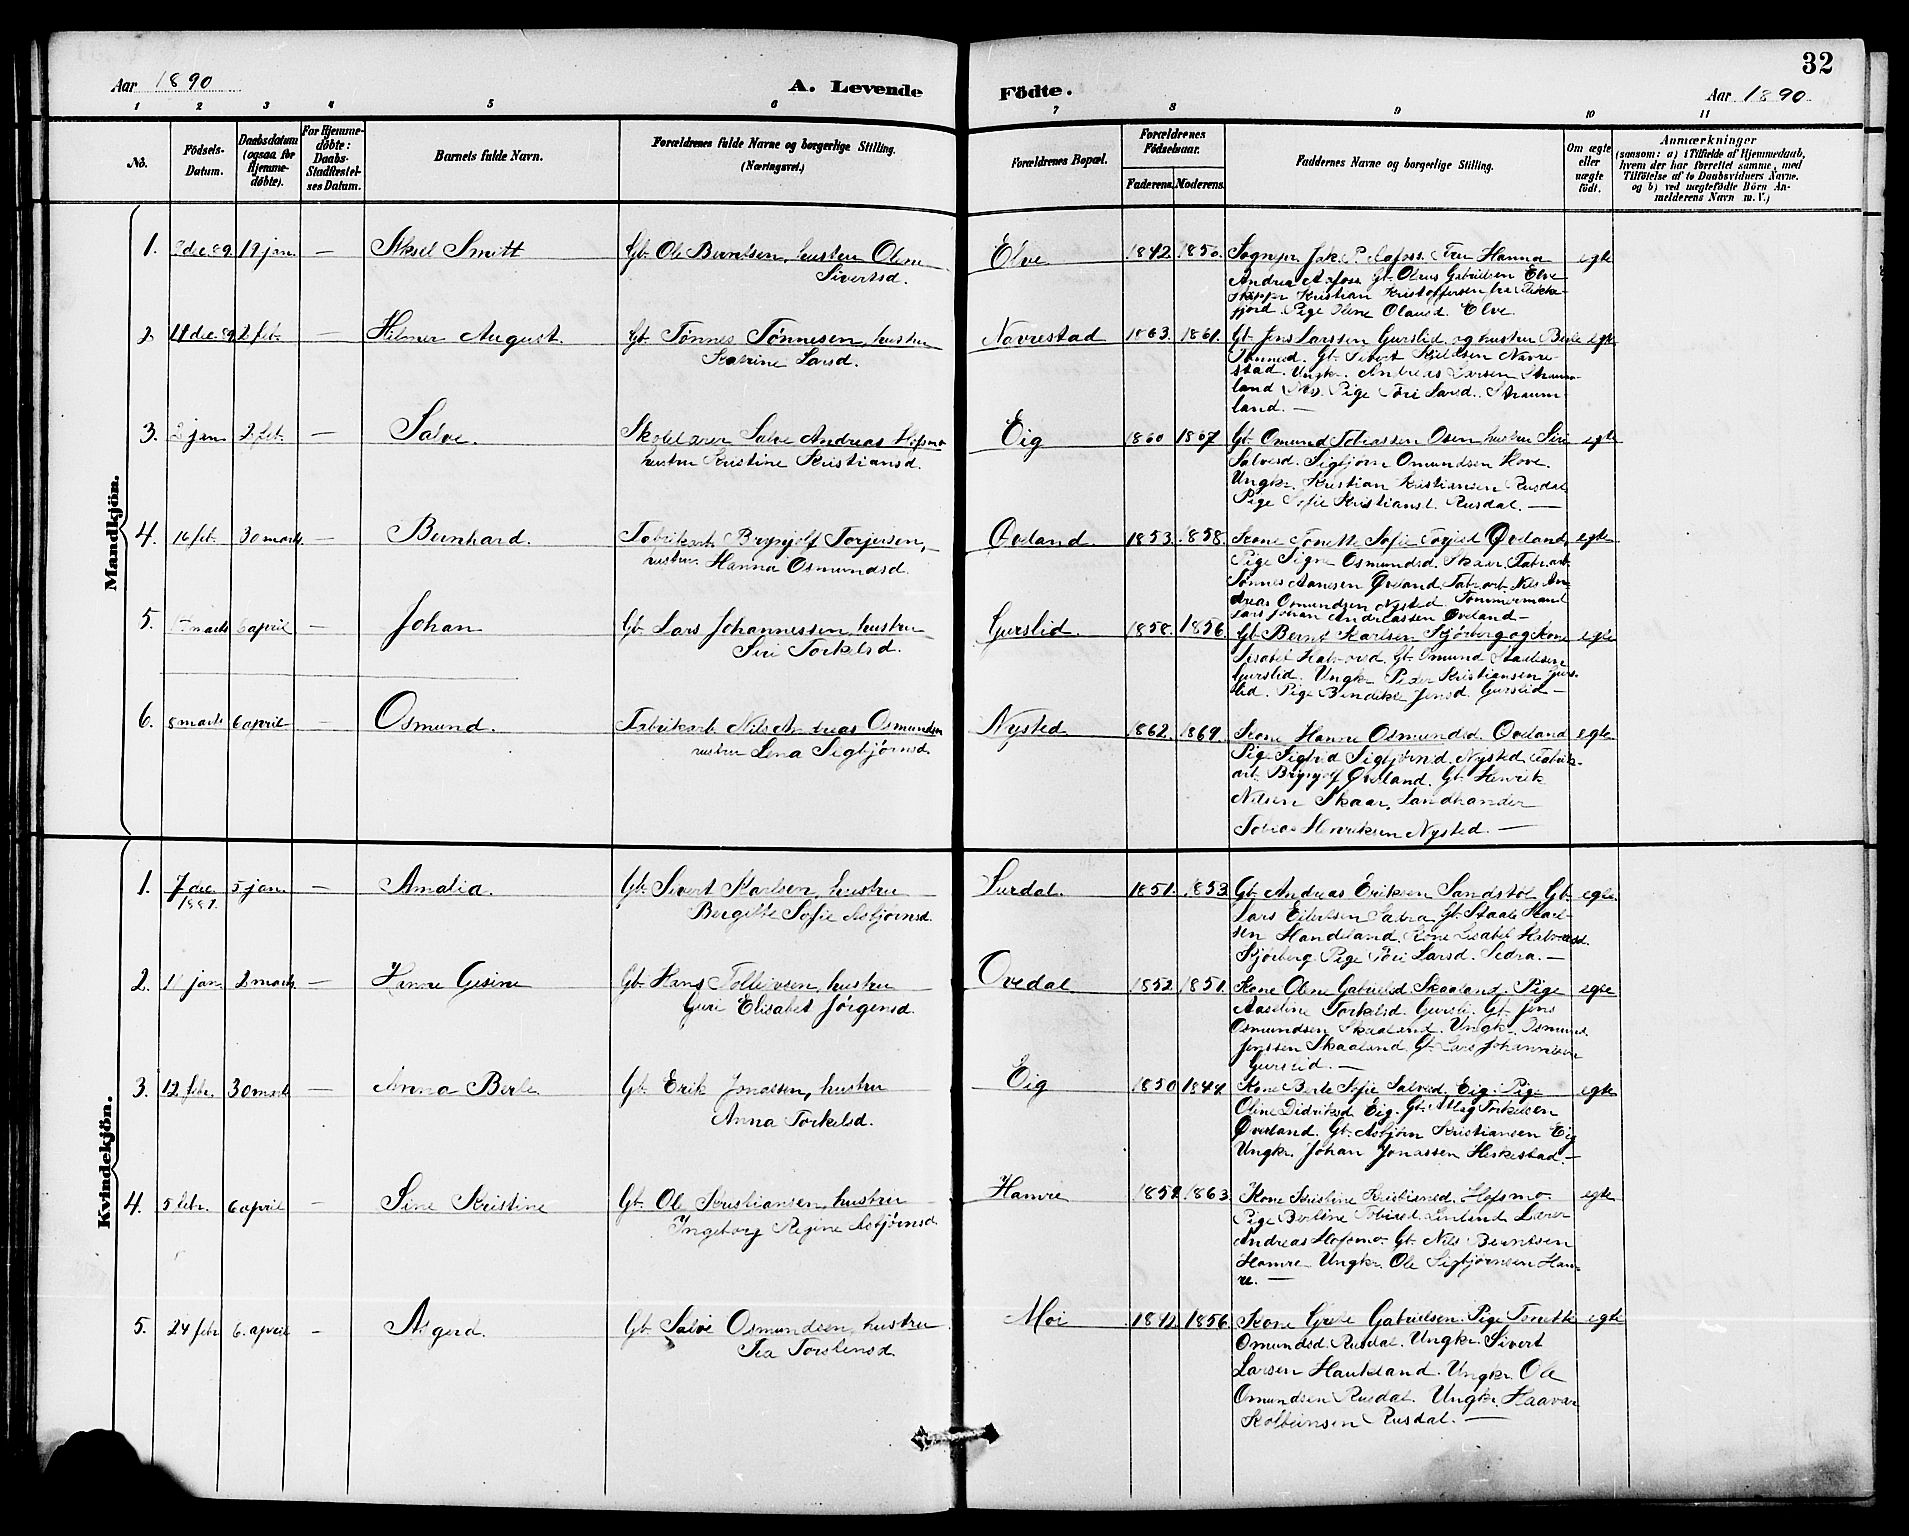 32
Aar 1890 A. Levende Födte. Aar 1890
1 2 3 4 5 6 7 8 9 10 11
No.
Födsels-Datum.
Daabsdatum (ogsaa for Hjemmedøbte).
For Hjemmedøbte: Daabs-Stadfestelses Datum.
Barnets fulde Navn.
Forældrenes fulde Navne og borgerlige Stilling. (Næringsvei.)
Forældrenes Bopæl.
Forældrenes Födselsaar.
Faderens. Moderens.
Faddernes Navne og borgerlige Stilling.
Om ægte eller uægte födt.
Anmærkninger
(saasom: a) i Tilfælde af Hjemmedaab,
hvem der har forrettet samme, med
Tilföielse af to Daabsvidners Navne.
og b) ved uægtefödte Börn An-
melderens Navn m.V.)
Mandkjön.
1. 19 jan. — Aksel Smitt Gb. Ole Berntsen, hustru Olene
Sivertsd.
Elve 1842. 1850. Fru Hanna egte
Andrea Gb. Olaus Gabrielsen Elve
Kristian Kristoffersen
fjord. Pige Olausd. Elve.
2. 11 dec. 89 2 feb. — Hilmer August. Gb. Tønnes Tønnesen, hustru
Katrine Larsd.
Navrestad 1863. 1861. Gb. Jens Larssen Gurslid og hustru Berte egte
Gb. Sivert Navre-
stad. Ungkr. Andreas Larsen Straum-
land Pige Tori Larsd. Straum-
land. —
3. 2 jan. 2 feb. — Salve. Skolelærer Salve Andreas Hofsmo
hustru Kristine Kristiansd.
Eig 1860 1867 Gb. Omund Tobiassen Osen hustru Siri egte
Salvesd. Sigbjørn Omundsen Hove.
Ungkr. Kristian Kristiansen Rusdal
Pige Sofie Kristiansd. Rusdal. —
4. 16 feb. 30 marts. — Bernhard. Fabrikarb. Brynjolf Torjersen,
hustru Hanna Osmundsd.
Øveland 1853. 1858. Kone Tonette Sofie Øveland, egte
Pige Signe Osmundsd. Skaar, Fabr.arb.
Tønnes Aanesen Øveland Fabr.arb. Nils An-
dreas Osmundsen Nysted Tømmermand
Lars Johan Andreassen Øveland —
5. marts 6 april — Johan Gb. Lars Johannessen, hustru
Siri Torkelsd.
Gurslid. 1858. 1856. Gb. Bernt Karlsen Skjørberg og Kone egte
Lisabet Gb. Omund
Gurslid. Ungkr. Peder Kristiansen Gurs-
lid. Pige Bendikte Jensd. Gurslid —
6. 8 marts 6 april — Osmund. Fabrikarb. Nils Andreas Osmundsen
hustru Lena Sigbjørnsd.
Nysted 1862. 1869. Kone Hanne Osmundsd. Øveland egte
Pige Sigbjørnsd. Nysted Fabrik-
arb. Brynjolf Øveland. Gb. Henrik
Nilsen Skaar, Landhandler
Tobias Henriksen Nysted. —
Kvindekjön.
1. 7 dec. 5 jan. — Amalia. Gb. Sivert Karlsen, hustru
1889. Bergitte Sofie Asbjørnsd.
Surdal. 1851. 1853. Gb. Andreas Eriksen Sandstøl Gb. egte.
Lars Eilertsen Gb. Staale Karl-
sen Handeland. Kone Lisabet
Skjørberg. Pige Tori Larsd. —
2. jan. 2 marts. — Hanne Gesine Gb. Hans Tolleivsen, hustru
Guri Elisabet Jörgensd.
Ovedal 1852. 1851. Kone Olene Gabrielsd. Skaaland. Pige egte
Aaseline Torkelsd. Gursli. Gb. Jens
Osmundsen Skaaland. Ungkr. Osmund
Jenssen Skaaland. Gb. Lars Johannesen
Gurslid. —
3. 12 febr. 30 marts — Anna Berte Gb. Erik Jonassen, hustru
Anna Torkelsd.
Eig 1850 Kone Berte Sofie Salvesd. Eig. Pige egte
Oline Didriksd. Eig. Gb. Atlag Torkelsen
Øveland. Gb. Asbjørn Kristiansen Eig
Ungkr. Johan Jonassen Heskestad. —
4. 5 febr. 6 april — Sine Kristine Gb. Ole Kristiansen, hustru
Ingeborg Regine Asbjørnsd.
Hamre 1863. Kone Kristine Kristiansd. Hofsmo. egte
Pige Berline Lærer
Andreas Hofsmo. Gb. Nils Berntsen
Hamre. Ungkr. Ole Sigbjørnsen Ham-
re. —
5. 24 febr 6. april — Asgerd. Gb. Salve Osmundsen, hustru
Tea Torstensd.
Moi 1856. Kone Gabrielsen. Pige Tonette egte
Omundsd. Rusdal. Ungkr. Sivert
Larsen Haukland. Ungkr. Ole
Omundsen Rusdal. Ungkr. Haavar
Kolbeinsen Rusdal. —